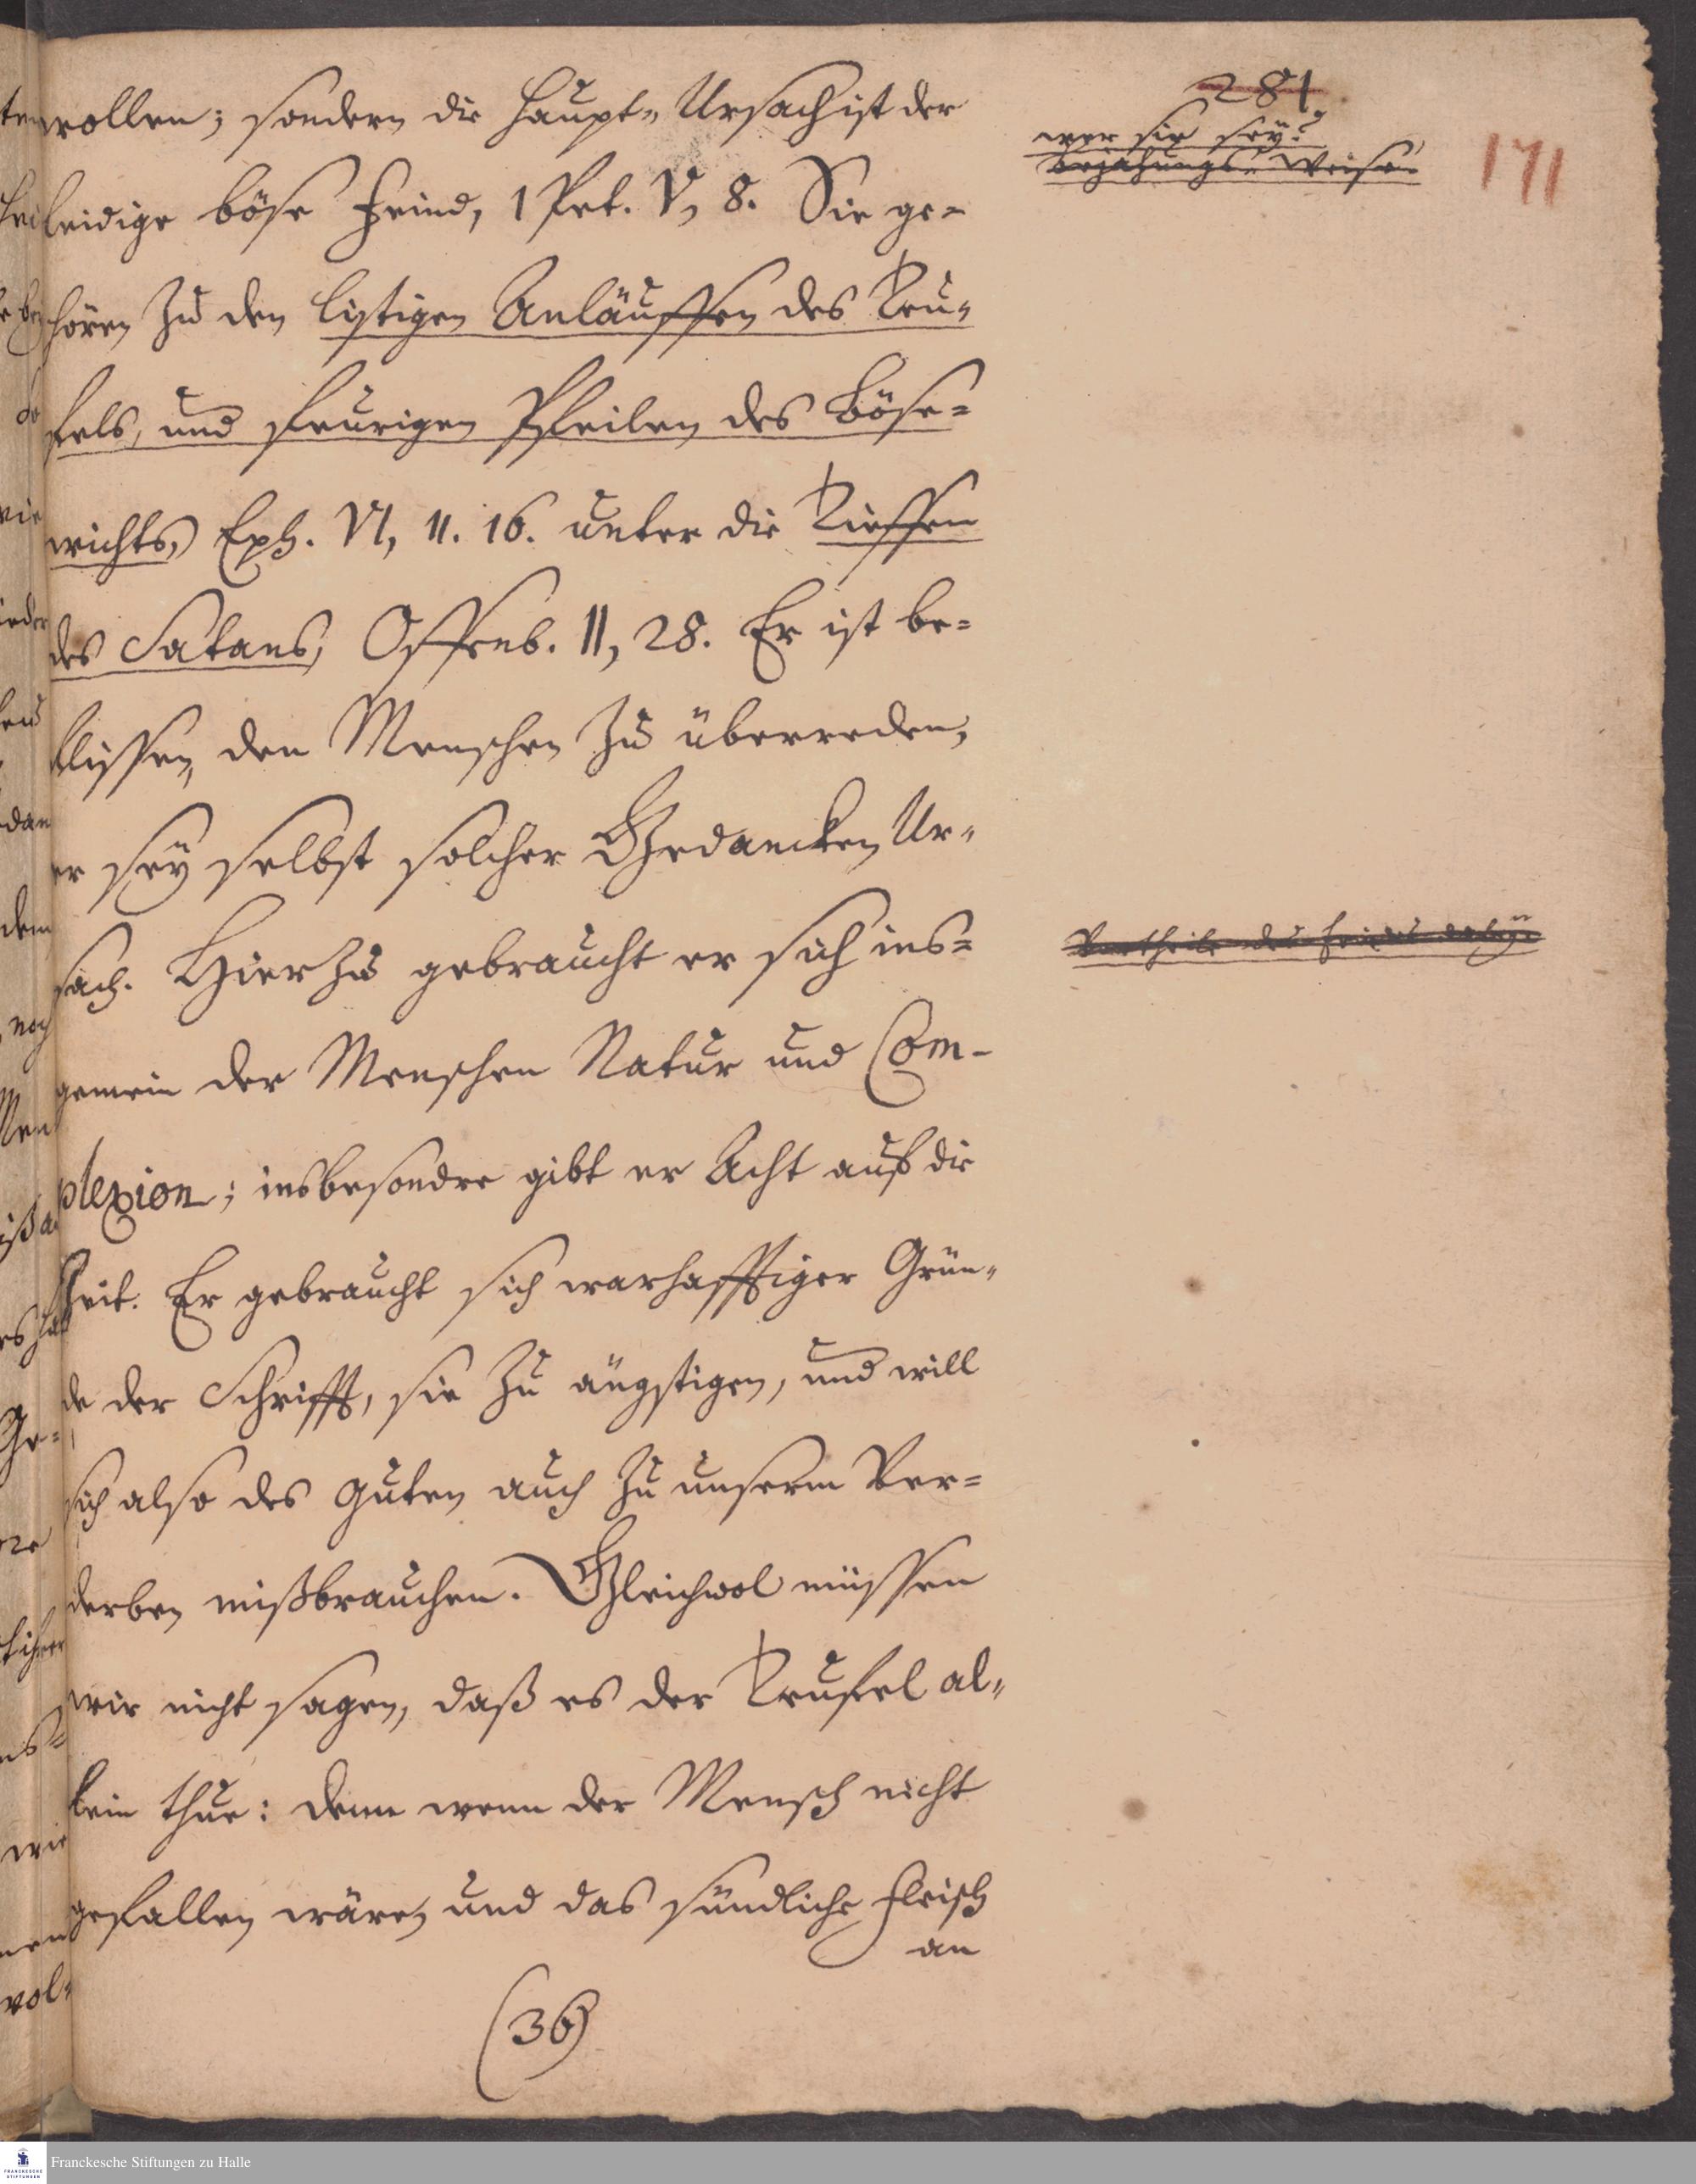 281
wer sie sey?
bejahungs-Weise.
171
wollen; sondern die Haupt-Ursach ist der
leidige böse Feind, 1 Pet. V, 8. Sie ge-
hören zu den listigen Anläuffen des Teu-
fels, und feurigen Pfeilen des Böse-
wichts, Eph. VI, 11. 16. unter die Tieffen
des Satans, Offenb. II, 28. Er ist be-
flissen, den Menschen zu überreden,
er sey selbst solcher Gedancken Ur-
sach. Hierzu gebraucht er sich ins-
Vortheile des Feindes dabey
gemein der Menschen Natur und Com-
plexion; insbesondre gibt er Acht auf die
Zeit. Er gebraucht sich warhafftiger Grün-
de der Schrifft, sie zu ängstigen, und will
sich also des guten auch zu unserm Ver-
derben mißbrauchen. Gleichwol müssen
wir nicht sagen, daß es der Teufel al-
lein thue: denn wenn der Mensch nicht
gefallen wäre, und das sündliche Fleisch
an
(36)
Franckesche Stiftungen zu Halle